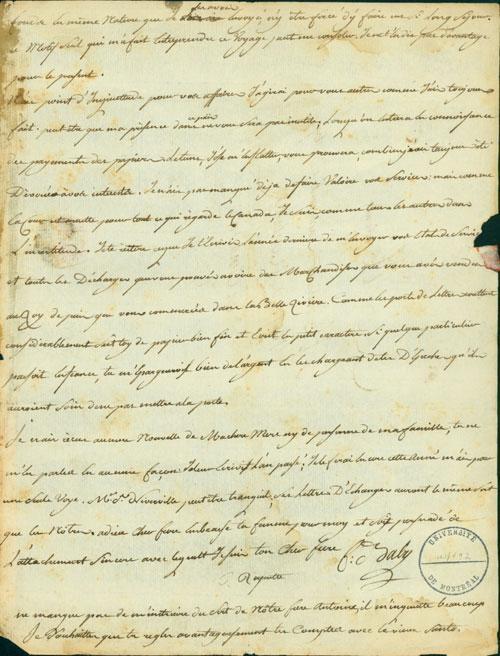 de la même Nature que
motif seul qui m'a fait Entreprendre ce Voyage peut me consoler. Je n'en dis pas davantage
pour le present.
N'aie point d'Inquiettude pour vos affaires J'agirai pour vous autres comme J'ai toujours
fait. peut etre que ma présence dans ce pais ne vous sera pas inutile, Lorsqu'on entrera en connoissance
des payements des papiers. Le tems, J'ose m'en flatter, vous prouvera, combien j'ai toujours été
Dévoué à vos interests. Je n'ai pas manqué déja de faire Valoire vos Services: mais comme
La Cour est muette pour tout ce qui regarde le Canada, Je suis comme tous les autres dans
L'incertitude. Je te réitere ce que Je t'Ecrivis L'année derniere de m'Envoyer vos Etats de Services
et toutes les Décharges que vous pouvés avoire des Marchandises que vous avés vendues
au Roy de puis que vous commercés dans la Belle Riviere. Comme les ports de Lettres coûtent
considérablement sers toy de papier bien fin et Ecrit en petit caractere. Si quelque particulier
passoit En france, tu m'Epargnerois bien de l'argent en les chargeant de tes Depeches qu'ils
auroient soin de ne pas mettre a la poste.
Je n'ai reçu aucune Nouvelle de Ma chere Mere ny de personne de ma famille; tu ne
m'en parles en aucune façon. Je leur Ecrivis L'an passé; Je le ferai encore cette Année
une seule Voye. Mr. de peut être tranquil, ses Lettres D'Echanges auront le même sort
que les Nôtres. adieu Cher frere Embrasse ta femme pour moy et sois persuadé de
L'attachement Sincere avec lequel Je suis ton Cher frere
fs. Baby
ne manque pas de m'instruire du sort de Nôtre frere Antoine, il m'inquiette beaucoup
Je Souhaitte que tu regles avantageusement tes Comptes avec le vieux
UNIVERSITÉ
DE MONTRÉAL